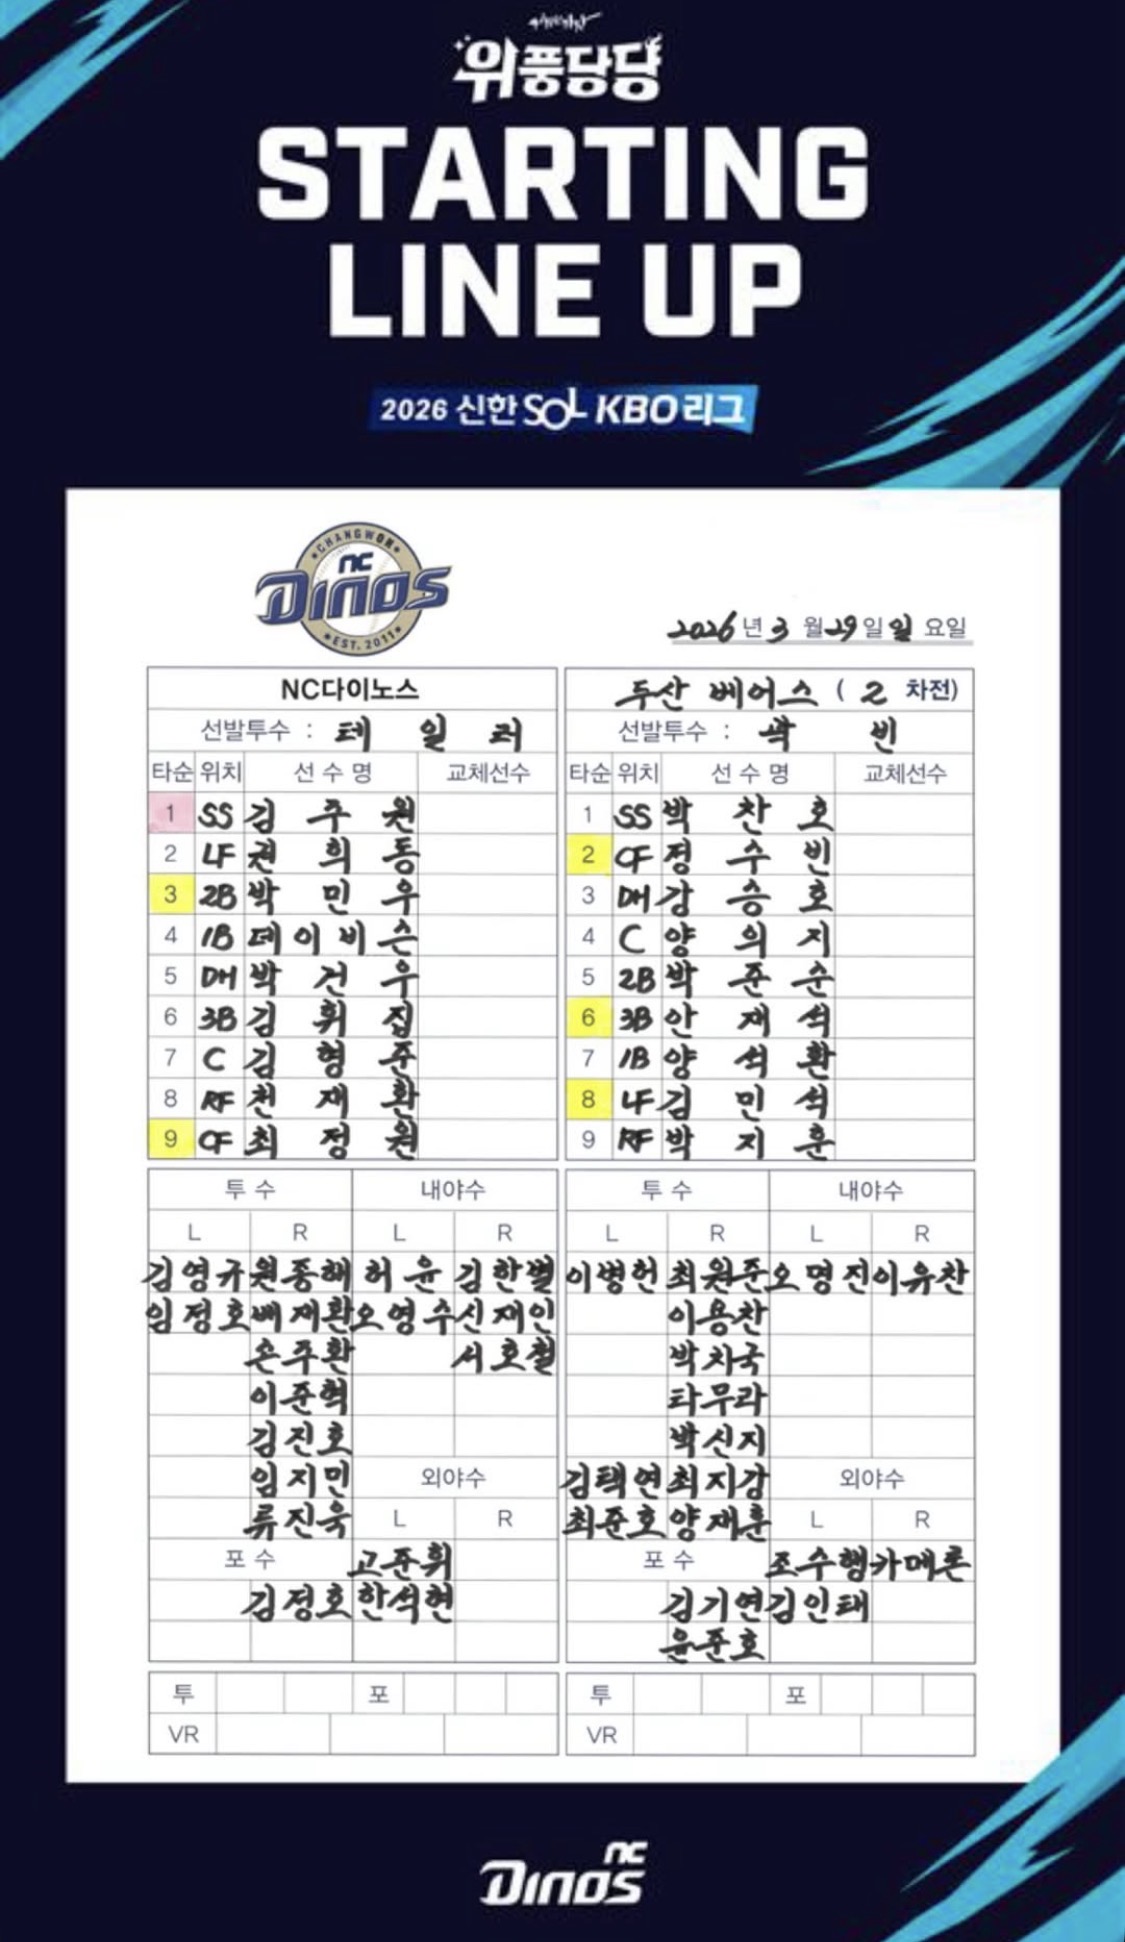 위풍당당
STARTING
LINE UP
2026 신한 SOL KBO 리그
CHANGWON
NC
Dinos
EST. 2011
2026년 3월 29일 일요일
NC다이노스
선발투수 : 테 일 러
타순 위치 선수명 교체선수
1 SS 김 주 원
2 LF 권 희 동
3 2B 박 민 우
4 1B 데 이 비 슨
5 DH 박 건 우
6 3B 김 휘 집
7 C 김 형 준
8 RF 천 재 환
9 CF 최 정 원
투수 내야수
L R L R
김영규 원종해 허윤 김한별
임정호 배재환 오영수 신재인
손주환 서호철
이준혁
김진호
임지민 외야수
류진욱 L R
포수 고준휘
김정호 한석현
투 포
VR
두산 베어스 ( 2 차전)
선발투수 : 곽 빈
타순 위치 선수명 교체선수
1 SS 박 찬 호
2 CF 정 수 빈
3 DH 강 승 호
4 C 양 의 지
5 2B 박 준 순
6 3B 안 재 석
7 1B 양 석 환
8 LF 김 민 석
9 RF 박 지 훈
투수 내야수
L R L R
이병헌 최원준 오명진 이유찬
이용찬
박치국
타무라
박신지
김택연 최지강 외야수
최준호 양재훈 L R
포수 조수행 카메론
김기연 김인태
윤준호
투 포
VR
NC
Dinos